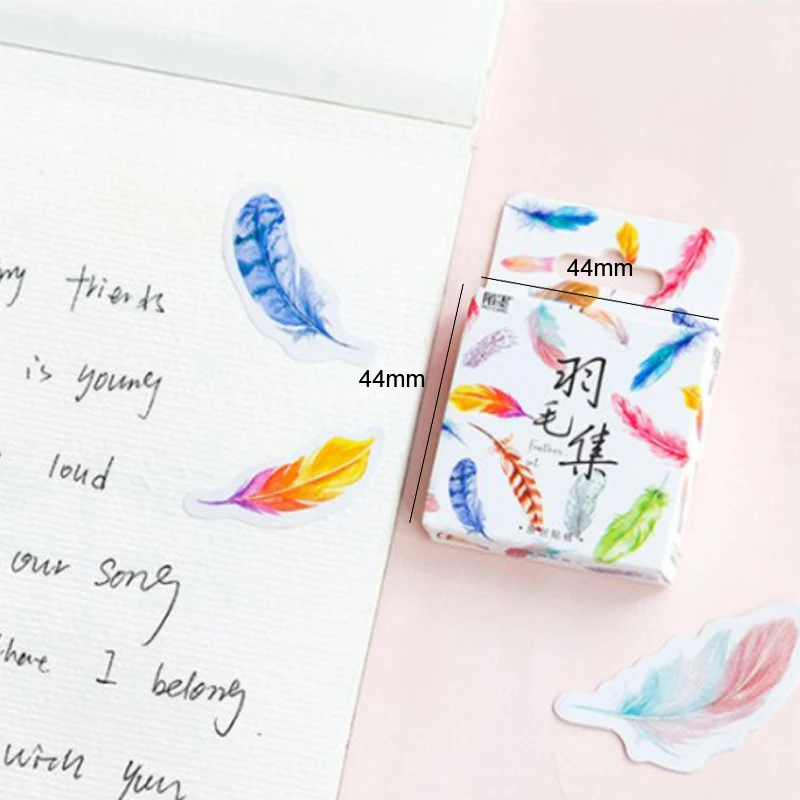 my friends
is young
loud
our song
where I belong.
with you
44mm
44mm
陌墨
羽
毛
集
Feather
set